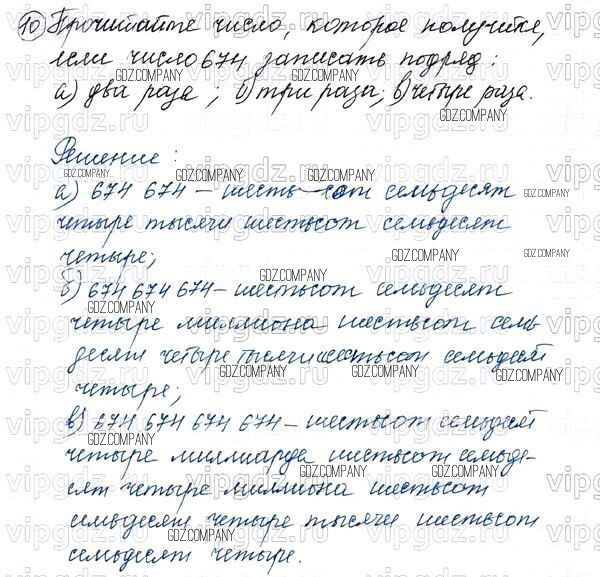 10) Прочитайте число, которое получите,
если число 674 записать подряд:
а) два раза; б) три раза; в) четыре раза.
Решение:
а) 674 674 – шестьсот семьдесят
четыре тысячи шестьсот семьдесят
четыре;
б) 674 674 674 – шестьсот семьдесят
четыре миллиона шестьсот семь-
десят четыре тысячи шестьсот семьдесят
четыре;
в) 674 674 674 674 – шестьсот семьдесят
четыре миллиарда шестьсот семьде-
сят четыре миллиона шестьсот
семьдесят четыре тысячи шестьсот
семьдесят четыре.